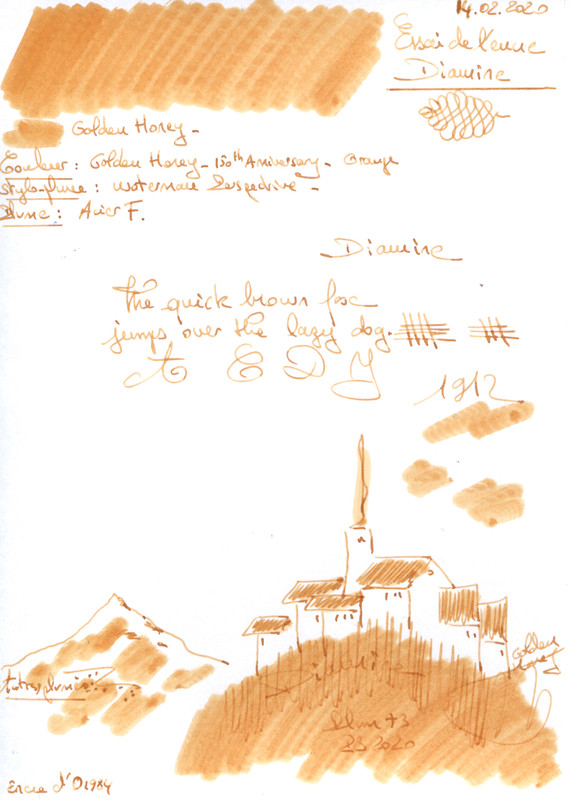 14.02.2020
Essai de l'encre
Diamine
Golden Honey -
Couleur : Golden Honey - 150th Anniversary - Orange
Stylo-plume : Waterman Perspective -
Plume : Acier F.
Diamine
The quick brown fox
jumps over the lazy dog.
A E D J
1912
Diamine
Golden
Honey
2020
Encre d'O1984